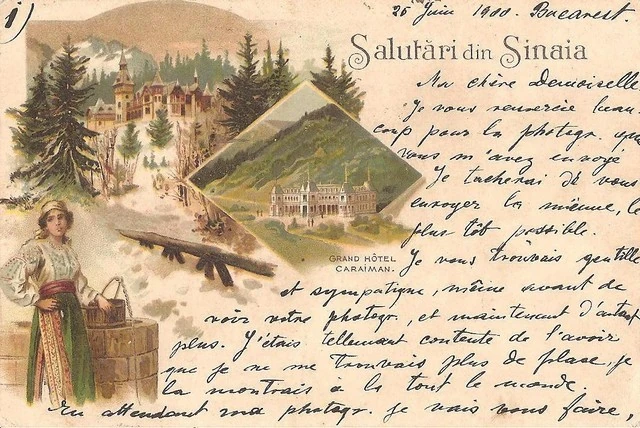 1)
25 Juin 1900. Bucarest.
Salutări din Sinaia
Ma chère Demoiselle
Je vous remercie beau
coup pour la photogr. que
vous m'avez envoyé
Je tacherai de vous
envoyer la mienne, le
plus tôt possible.
GRAND HÔTEL
CARAÏMAN.
Je vous trouvais gentille
et sympatique, même avant de
voir votre photogr., et maintenant d'autant
plus. J'étais tellement contente de l'avoir
que je ne me trouvais plus de place, je
la montrais à la tout le monde.
En attendant ma photogr. je vais vous faire,